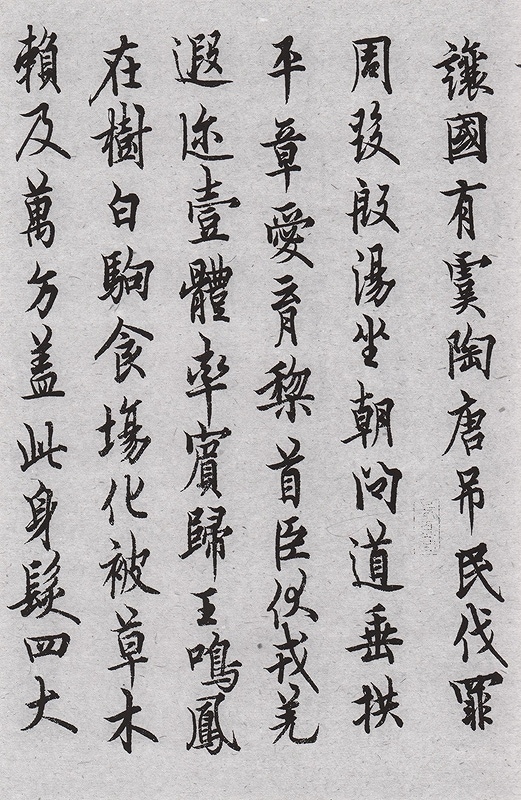 讓國有虞陶唐吊民伐罪
周發殷湯坐朝問道垂拱
平章愛育黎首臣伏戎羌
遐迩壹體率賓歸王鳴鳳
在樹白駒食場化被草木
賴及萬方蓋此身髮四大